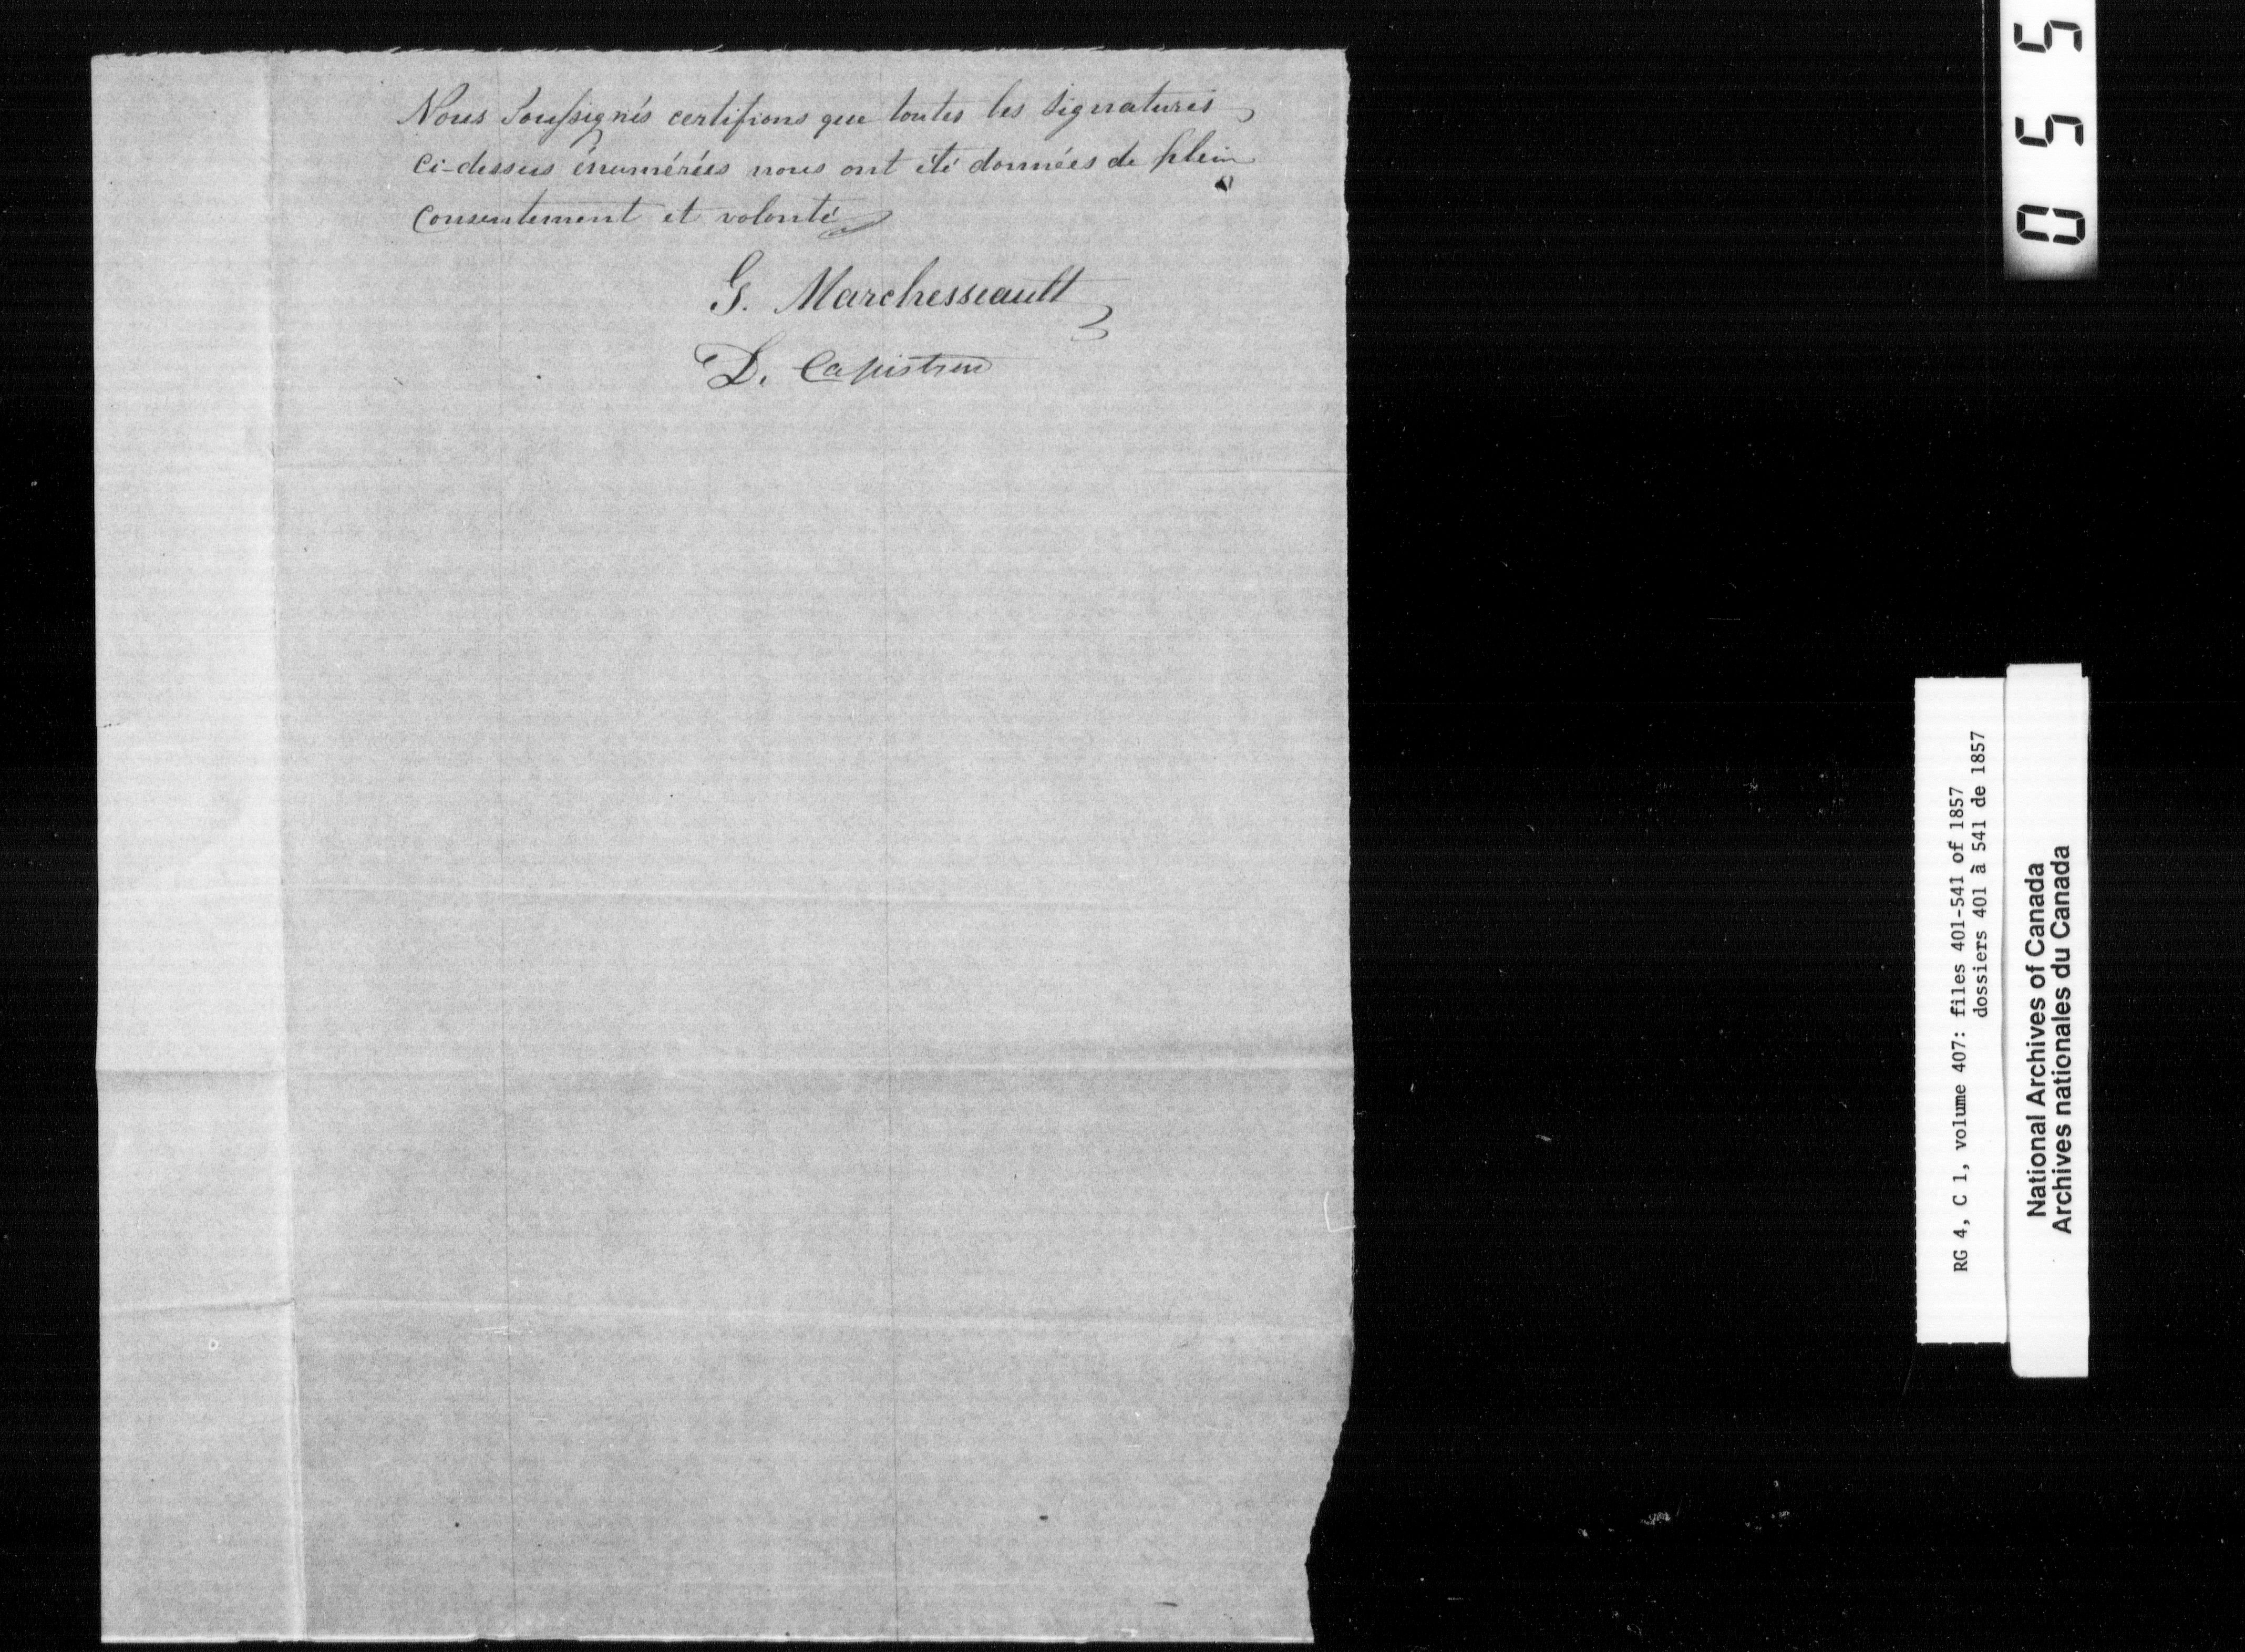 Nous Soussignés certifions que toutes les signatures
Ci-dessus énumérées nous ont été données de plein
Consentement et volonté
G. Marchesseault
D. Capistran
0 5 5
RG 4, C 1, volume 407: files 401-541 of 1857
dossiers 401 à 541 de 1857
National Archives of Canada
Archives nationales du Canada